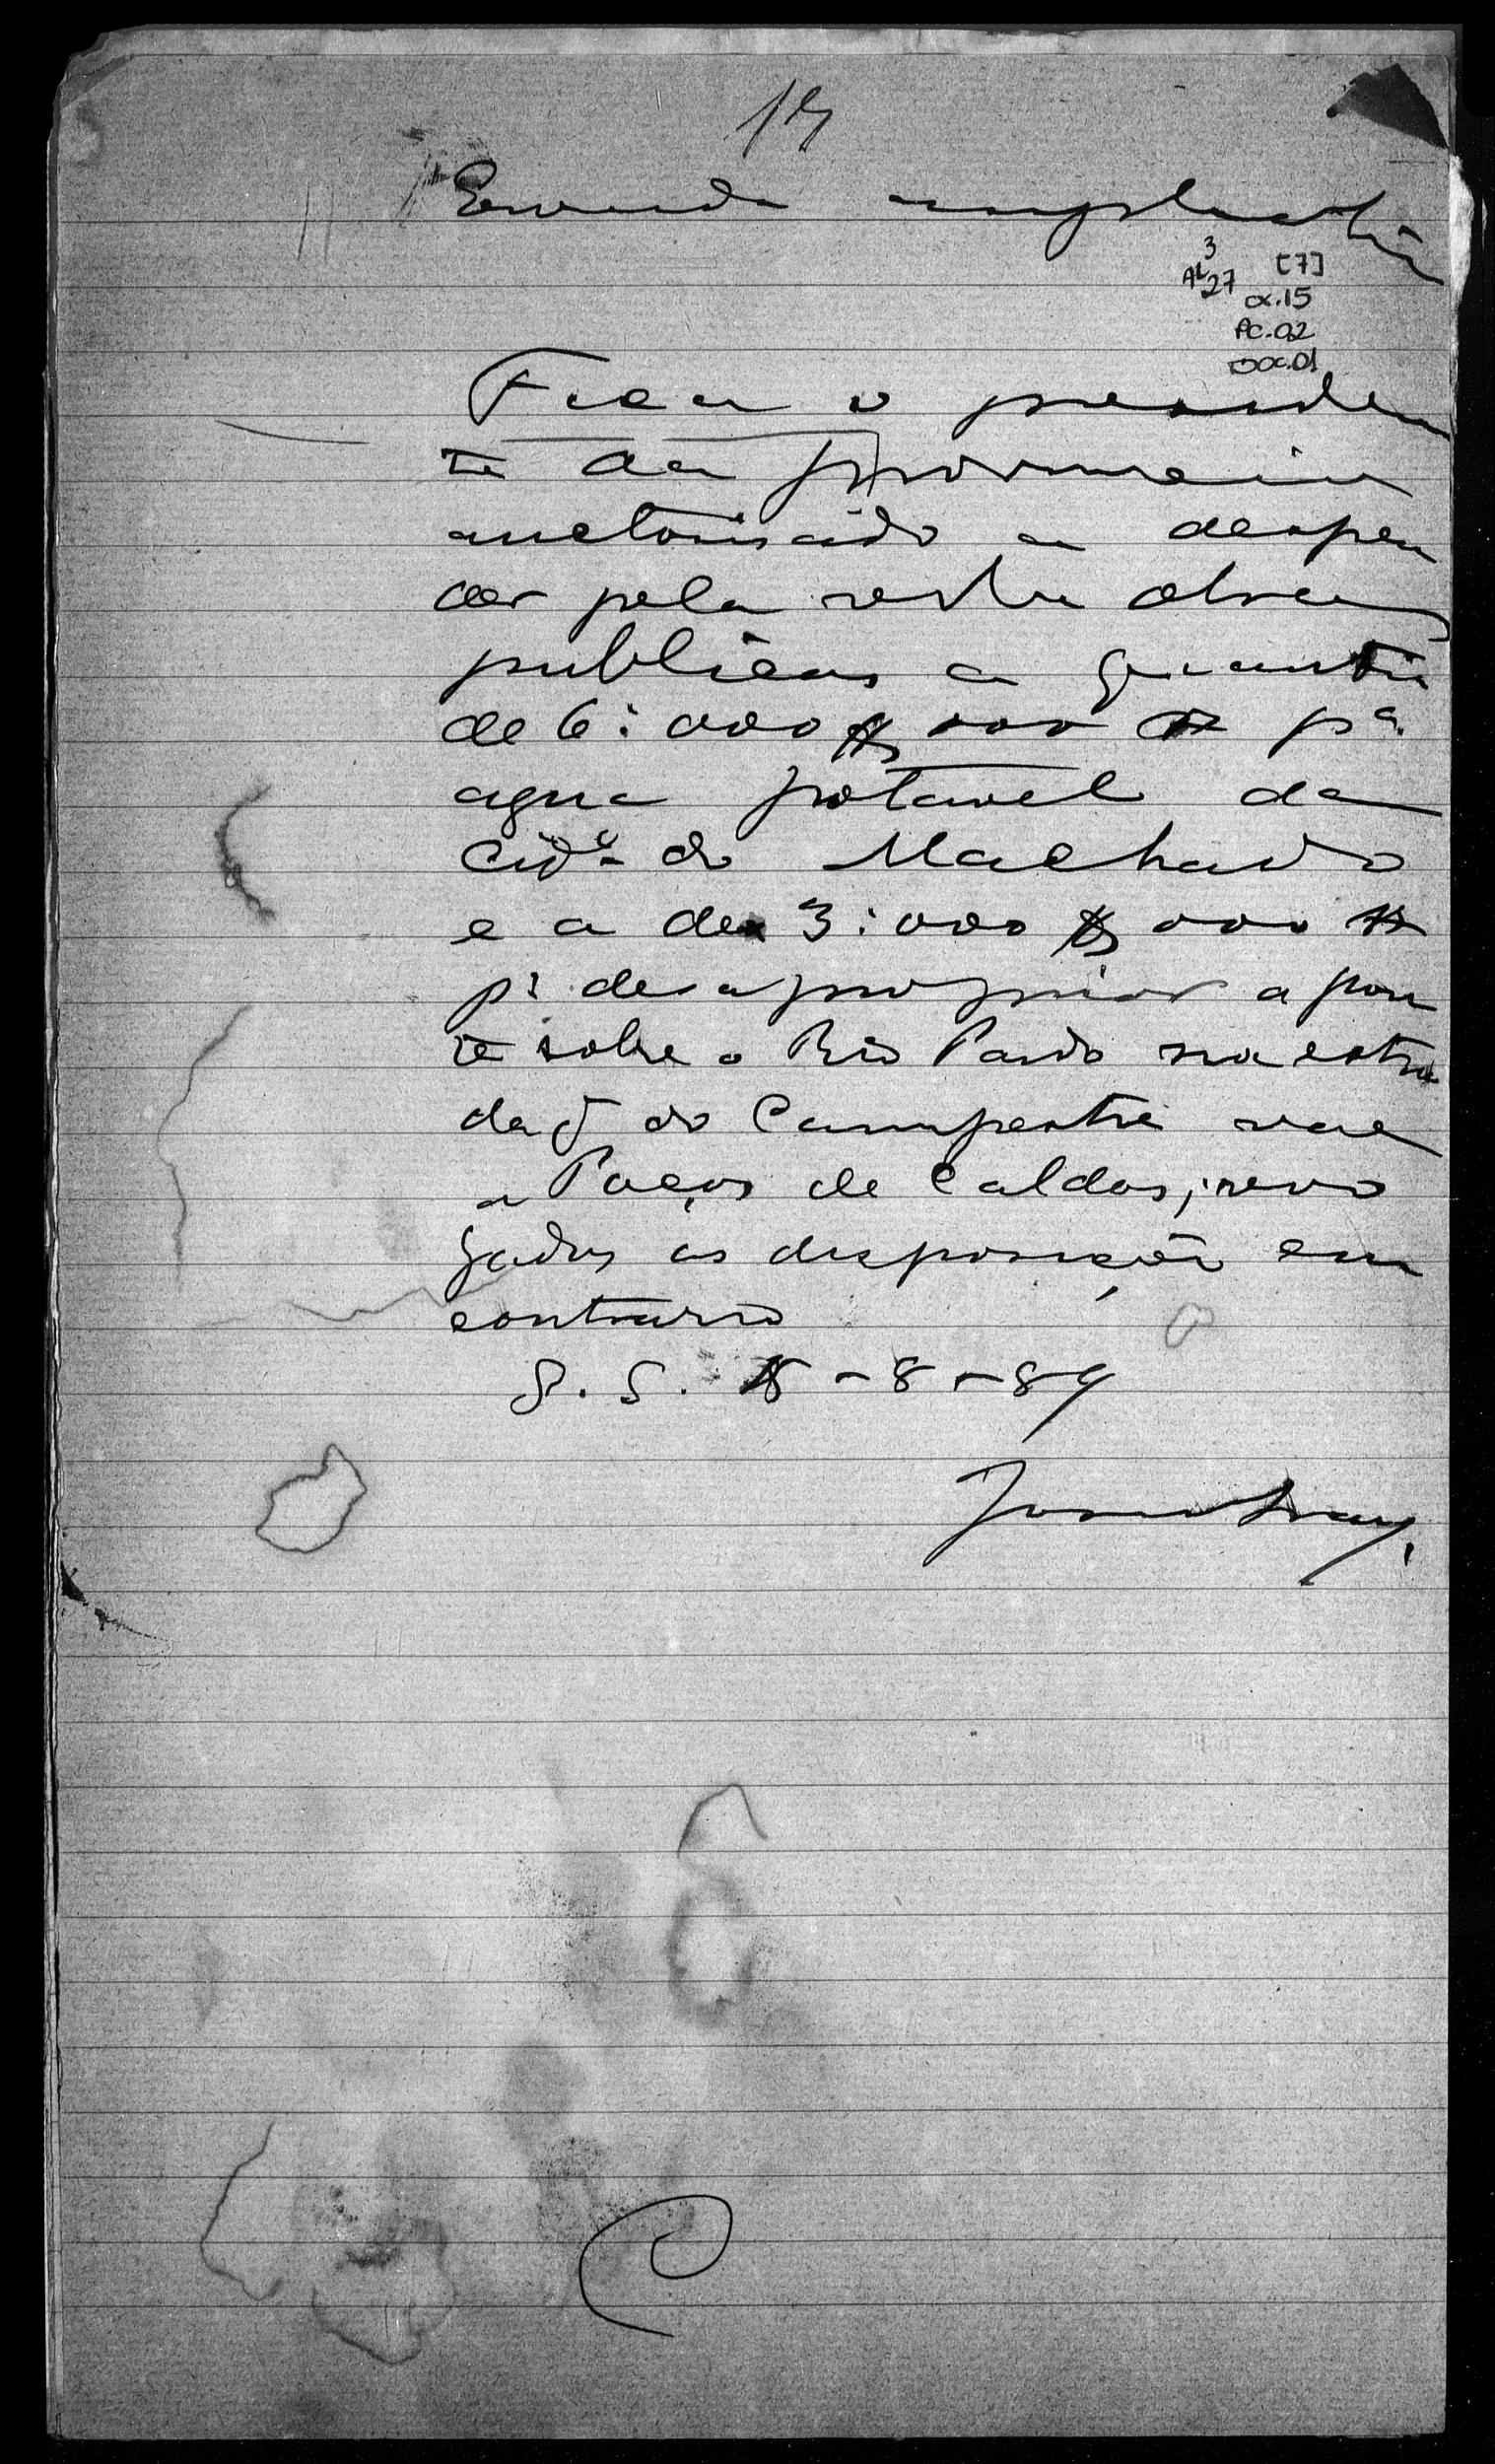 Emenda
AL 3
27
[7]
cx.15
PC.02
DOC.01
Fica o presiden
te da provincia
auctorisado a despen
der pela verba obras
publicas a quantia
de 6:000$000 pa.
agua potavel da
cide. do Machado
e a de 3:000$000
pa. desapropriar a pon
te sobre o Rio Pardo na estra
da q̃ do Campestre vae
a Poços de Caldas; revo
gadas as disposições em
contrario
S. S. 8-8-89